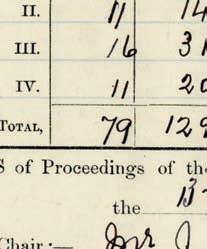 II. 11 14
III. 16 31
IV. 11 20
TOTAL, 79 129
S of Proceedings of the
the 13
Chair:—